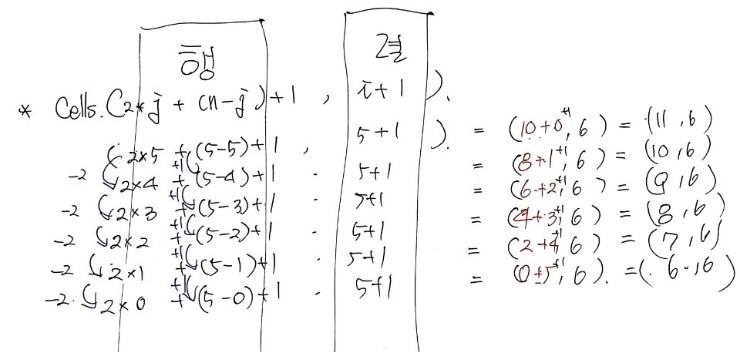 행 열
* Cells.(2*j + (n-j)+1 , i+1 ).
(2×5 +(5-5)+1 , 5+1 ). = (10+0+1, 6) = (11, 6)
-2 2×4 +1 +(5-4)+1 . 5+1 = (8+1+1, 6) = (10, 6)
-2 2×3 +1 +(5-3)+1 . 5+1 = (6+2+1, 6) = (9, 6)
-2 2×2 +1 +(5-2)+1 . 5+1 = (4+3+1, 6) = (8, 6)
-2 2×1 +1 +(5-1)+1 . 5+1 = (2+4+1, 6) = (7, 6)
-2 2×0 +1 +(5-0)+1 . 5+1 = (0+5+1, 6). = (6, 6)